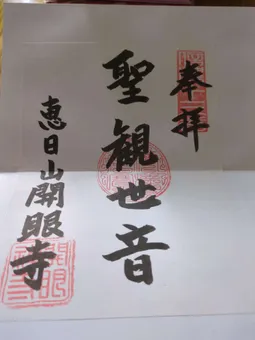 奉拝
聖観世音
恵日山開眼寺